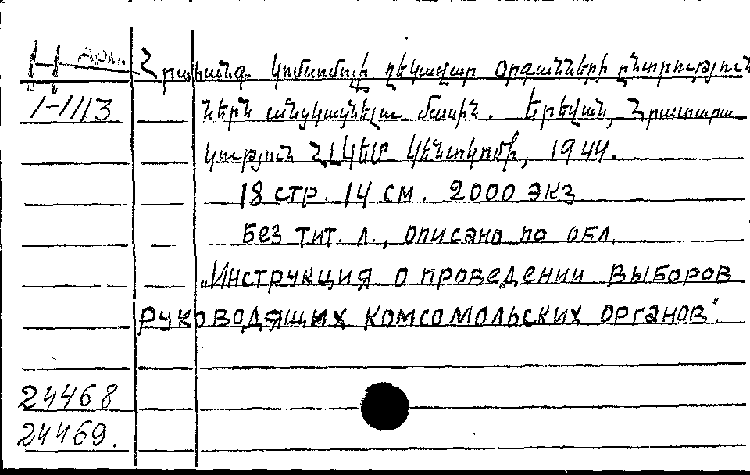 Հրահանգ կոմսոմոլի ղեկավար օրգանների ընտրություն
1-1113 ներն անցկացնելու մասին. Երեվան, Հրատարա
կություն ՀԼԿԵՄ Կենտկոմի, 1944.
18 стр. 14 см. 2000 экз
Без тит. л., описано по обл.
„Инструкция о проведении выборов
руководящих комсомольских органов".
24468
24469.